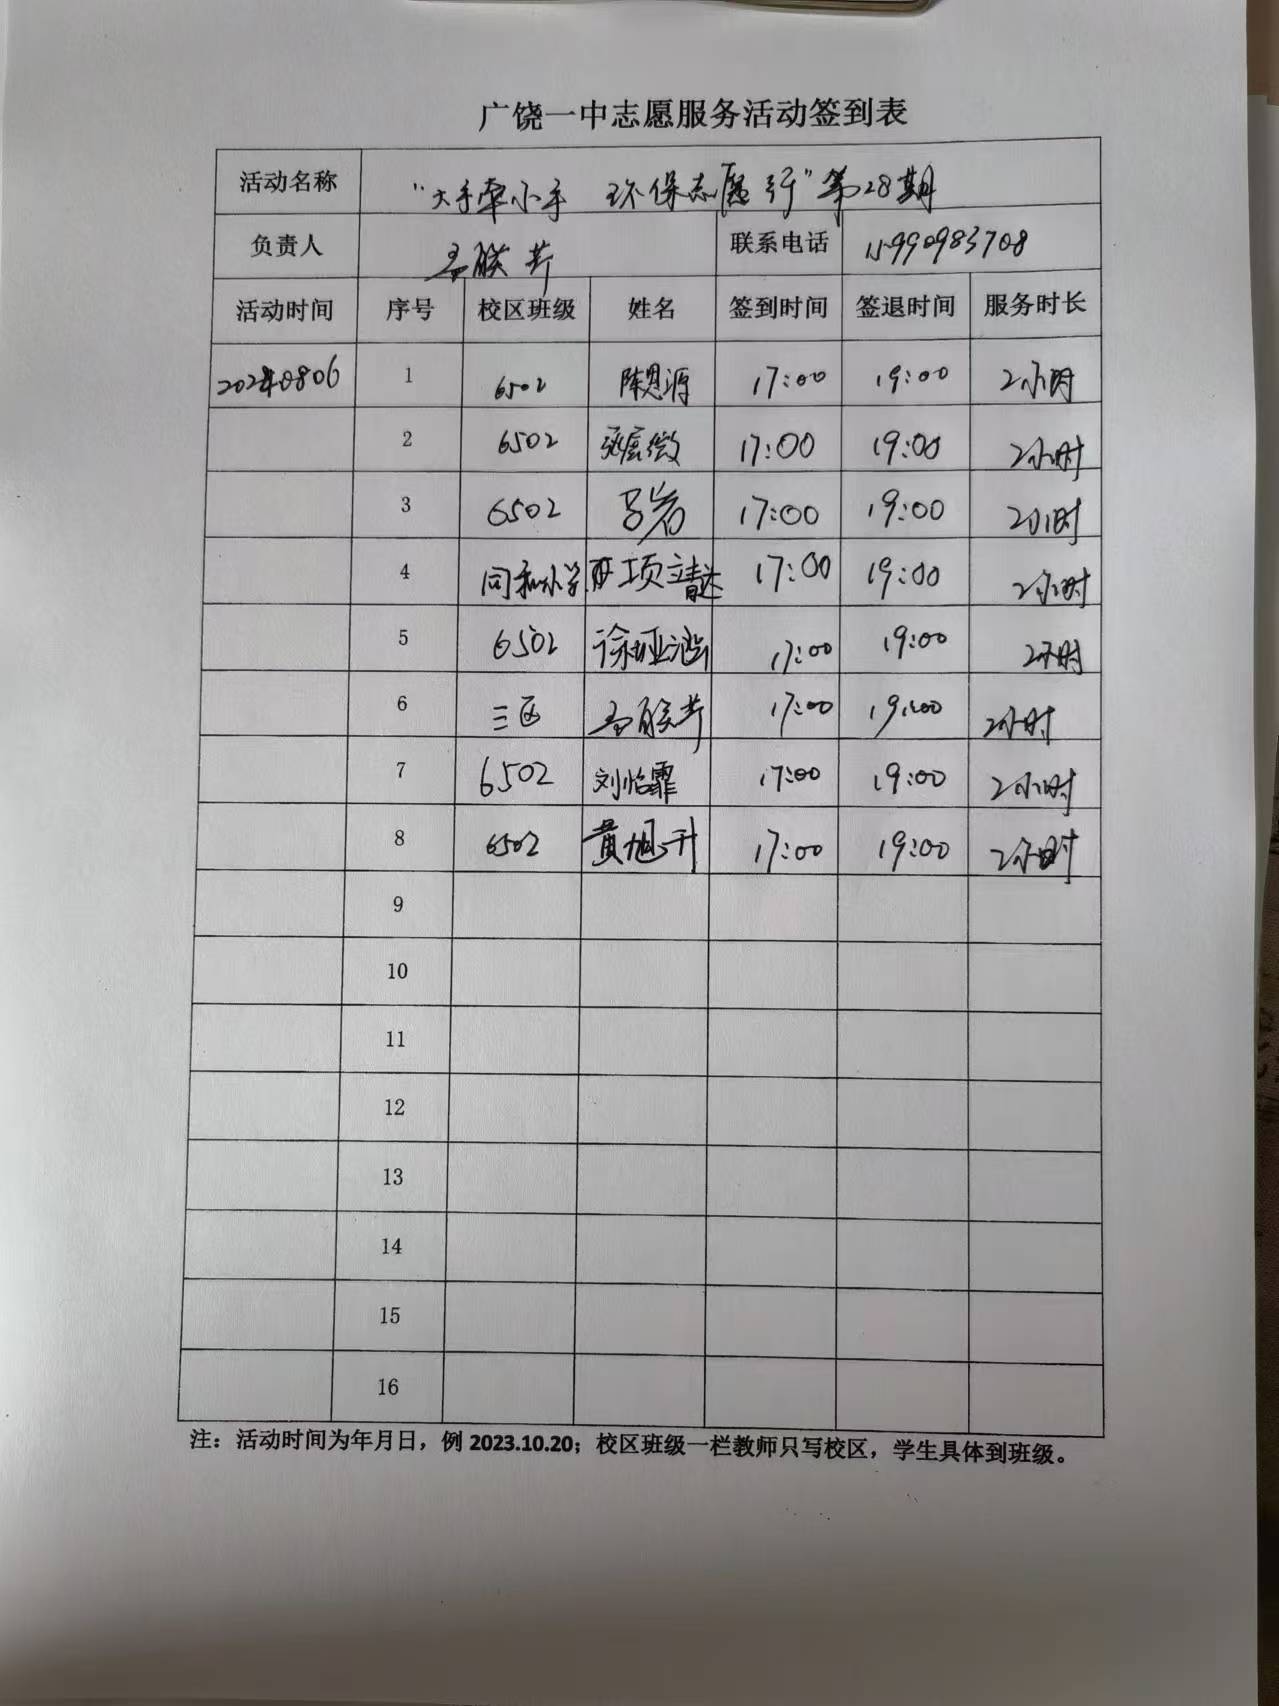 广饶一中志愿服务活动签到表
活动名称 "大手牵小手 环保志愿行"第28期
负责人 联系电话 15990983708
活动时间 序号 校区班级 姓名 签到时间 签退时间 服务时长
20240806 1 6502 陈思源 17:00 19:00 2小时
2 6502 17:00 19:00 2小时
3 6502 吕岩 17:00 19:00 2小时
4 同和小学 17:00 19:00 2小时
5 6502 徐娅涵 17:00 19:00 2小时
6 三区 17:00 19:00 2小时
7 6502 刘怡霏 17:00 19:00 2小时
8 6502 黄旭升 17:00 19:00 2小时
9
10
11
12
13
14
15
16
注：活动时间为年月日，例 2023.10.20；校区班级一栏教师只写校区，学生具体到班级。